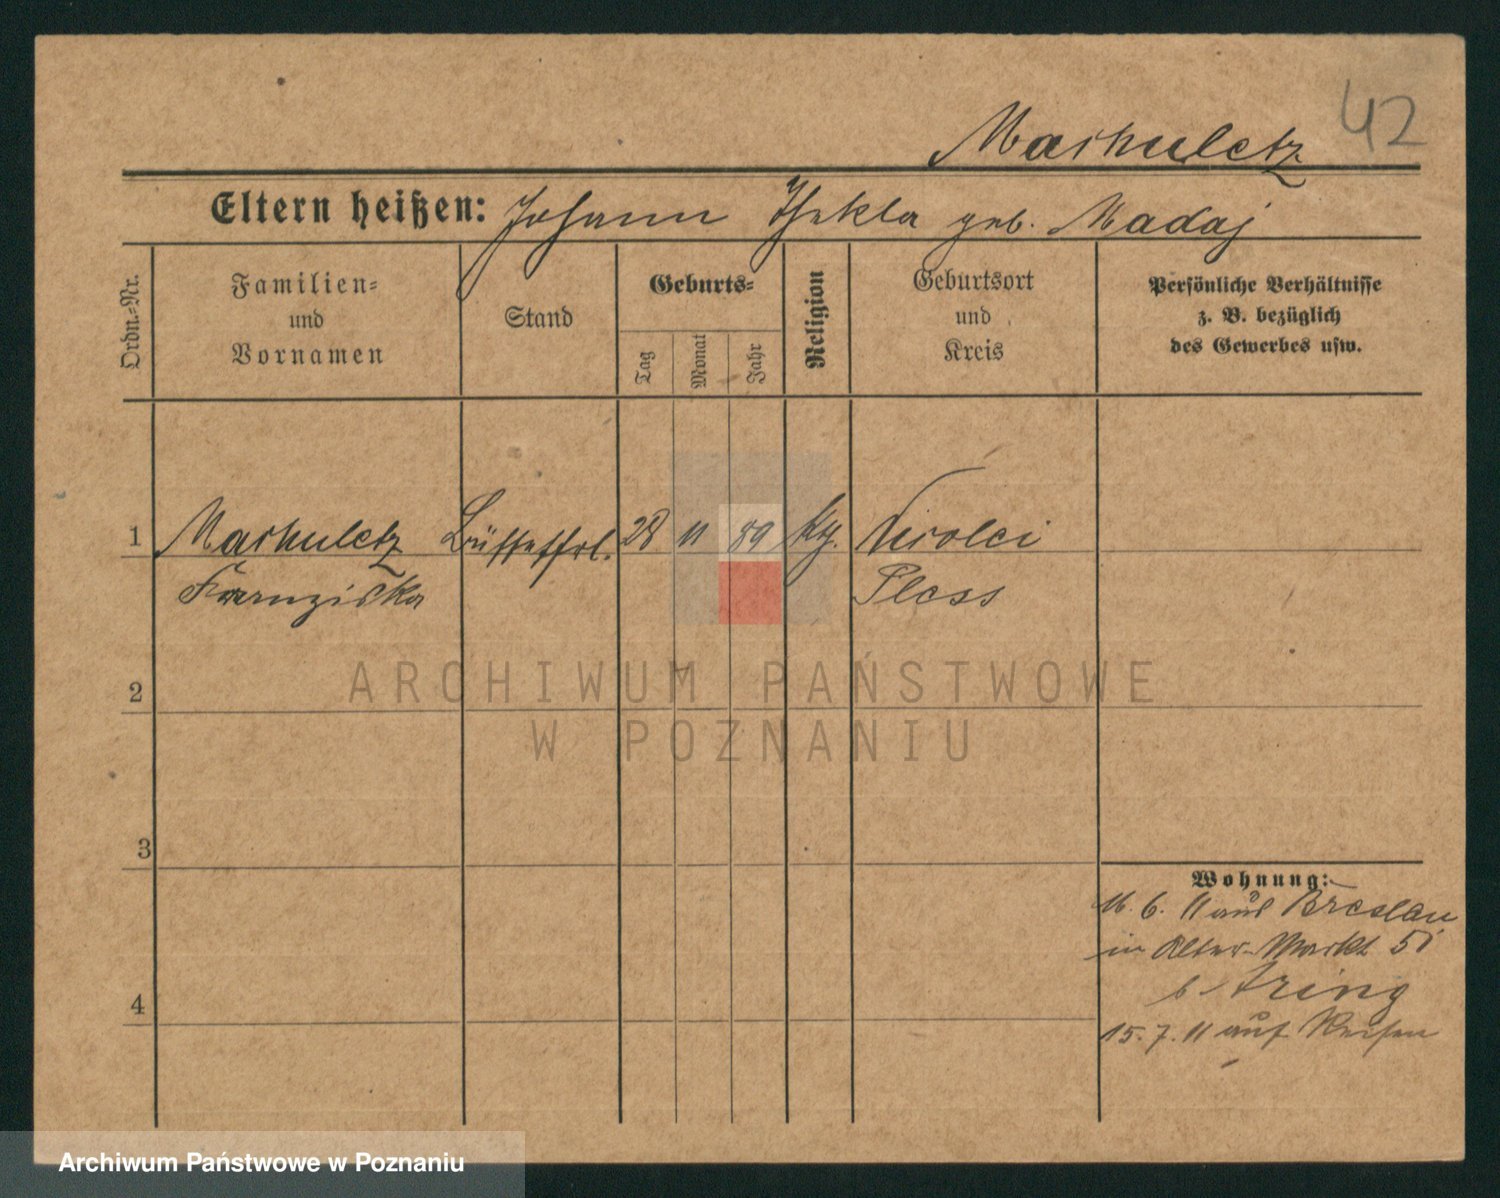 42
Marhuletz
Eltern heißen: Johann Thekla geb. Madaj
Ordn.-Nr.
Familien-
und
Vornamen
Stand
Geburts-
Tag
Monat
Jahr
Religion
Geburtsort
und
Kreis
Persönliche Verhältnisse
z. B. bezüglich
des Gewerbes usw.
1 Marhuletz Büffetfrl. 28 11 89 Kth. Nicolei
Franziska Pless
2
ARCHIWUM PAŃSTWOWE
W POZNANIU
3
Wohnung:
16. 6. 11 aus Breslau
in Alter-Markt 51
b
4
15. 7. 11 auf Reisen
Archiwum Państwowe w Poznaniu